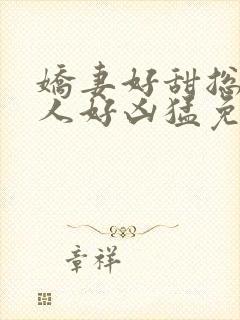 嬌妻好甜挩
人好凶猛免
章祥